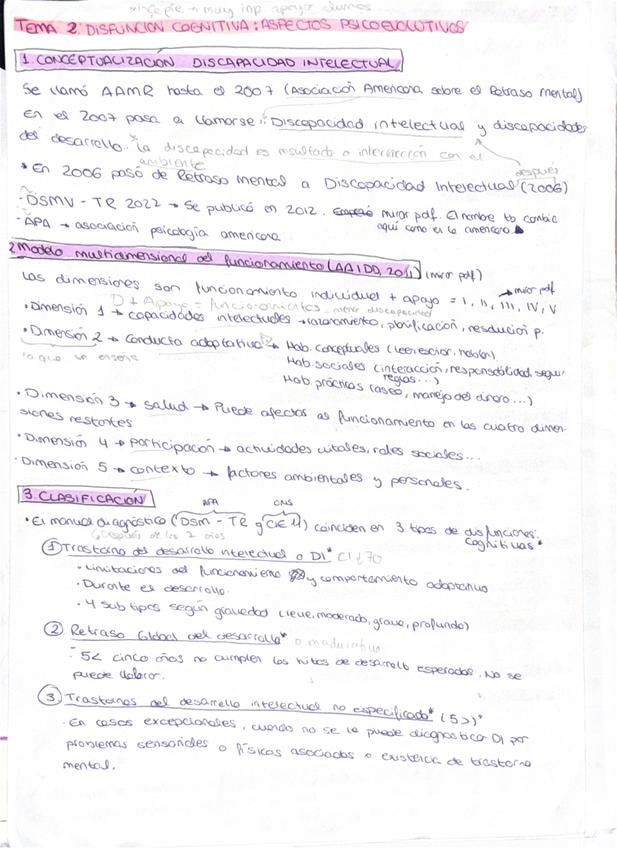 muy imp apoyar alumnos
TEMA 2. DISFUNCION COGNITIVA: ASPECTOS PSICOEVOLUTIVOS
1. CONCEPTUALIZACION DISCAPACIDAD INTELECTUAL
Se llamó AAMR hasta el 2007 (Asociación Americana sobre el Retraso Mental)
En el 2007 pasa a llamarse: Discapacidad intelectual y discapacidades
del desarrollo. * la discapacidad es resultado o interacción con el
ambiente
después
* En 2006 pasó de Retraso Mental a Discapacidad Intelectual (2006)
- DSMV - TR 2022 → Se publicó en 2012. mirar pdf. El nombre tb cambia
aquí como en la americana.
- APA → asociación psicología americana
2. Modelo multidimensional del funcionamiento (AAIDD, 2011) (mirar pdf)
Las dimensiones son funcionamiento individual + apoyo = I, II, III, IV, V → mirar pdf
D + Apoyo = funcionamiento → menor discapacidad
• Dimensión 1 → capacidades intelectuales → razonamiento, planificación, resolución p.
• Dimensión 2 → Conducta adaptativa → Hab. conceptuales (leer, escribir, hablar)
lo que se enseña
Hab. sociales (interacción, responsabilidad, seguir
reglas...)
Hab. prácticas (aseo, manejo del dinero...)
• Dimensión 3 → salud → Puede afectar al funcionamiento en las cuatro dimen-
siones restantes
• Dimensión 4 → participación → actividades vitales, roles sociales...
• Dimensión 5 → contexto → factores ambientales y personales.
3. CLASIFICACIÓN
APA OMS
• El manual diagnóstico (DSM - TR y CIE 11) coinciden en 3 tipos de disfunciones
cognitivas *
Después de los 2 años
① Trastorno del desarrollo intelectual o DI* CI < 70
• Limitaciones del funcionamiento y comportamiento adaptativo
• Durante el desarrollo.
• 4 subtipos según gravedad (leve, moderado, grave, profundo)
② Retraso Global del desarrollo* o madurativo
• 5< cinco años no cumplen los hitos de desarrollo esperados. No se
puede valorar.
③ Trastornos del desarrollo intelectual no especificado* (5>)*
• En casos excepcionales, cuando no se le puede diagnosticar DI por
problemas sensoriales o físicos asociados o existencia de trastorno
mental.